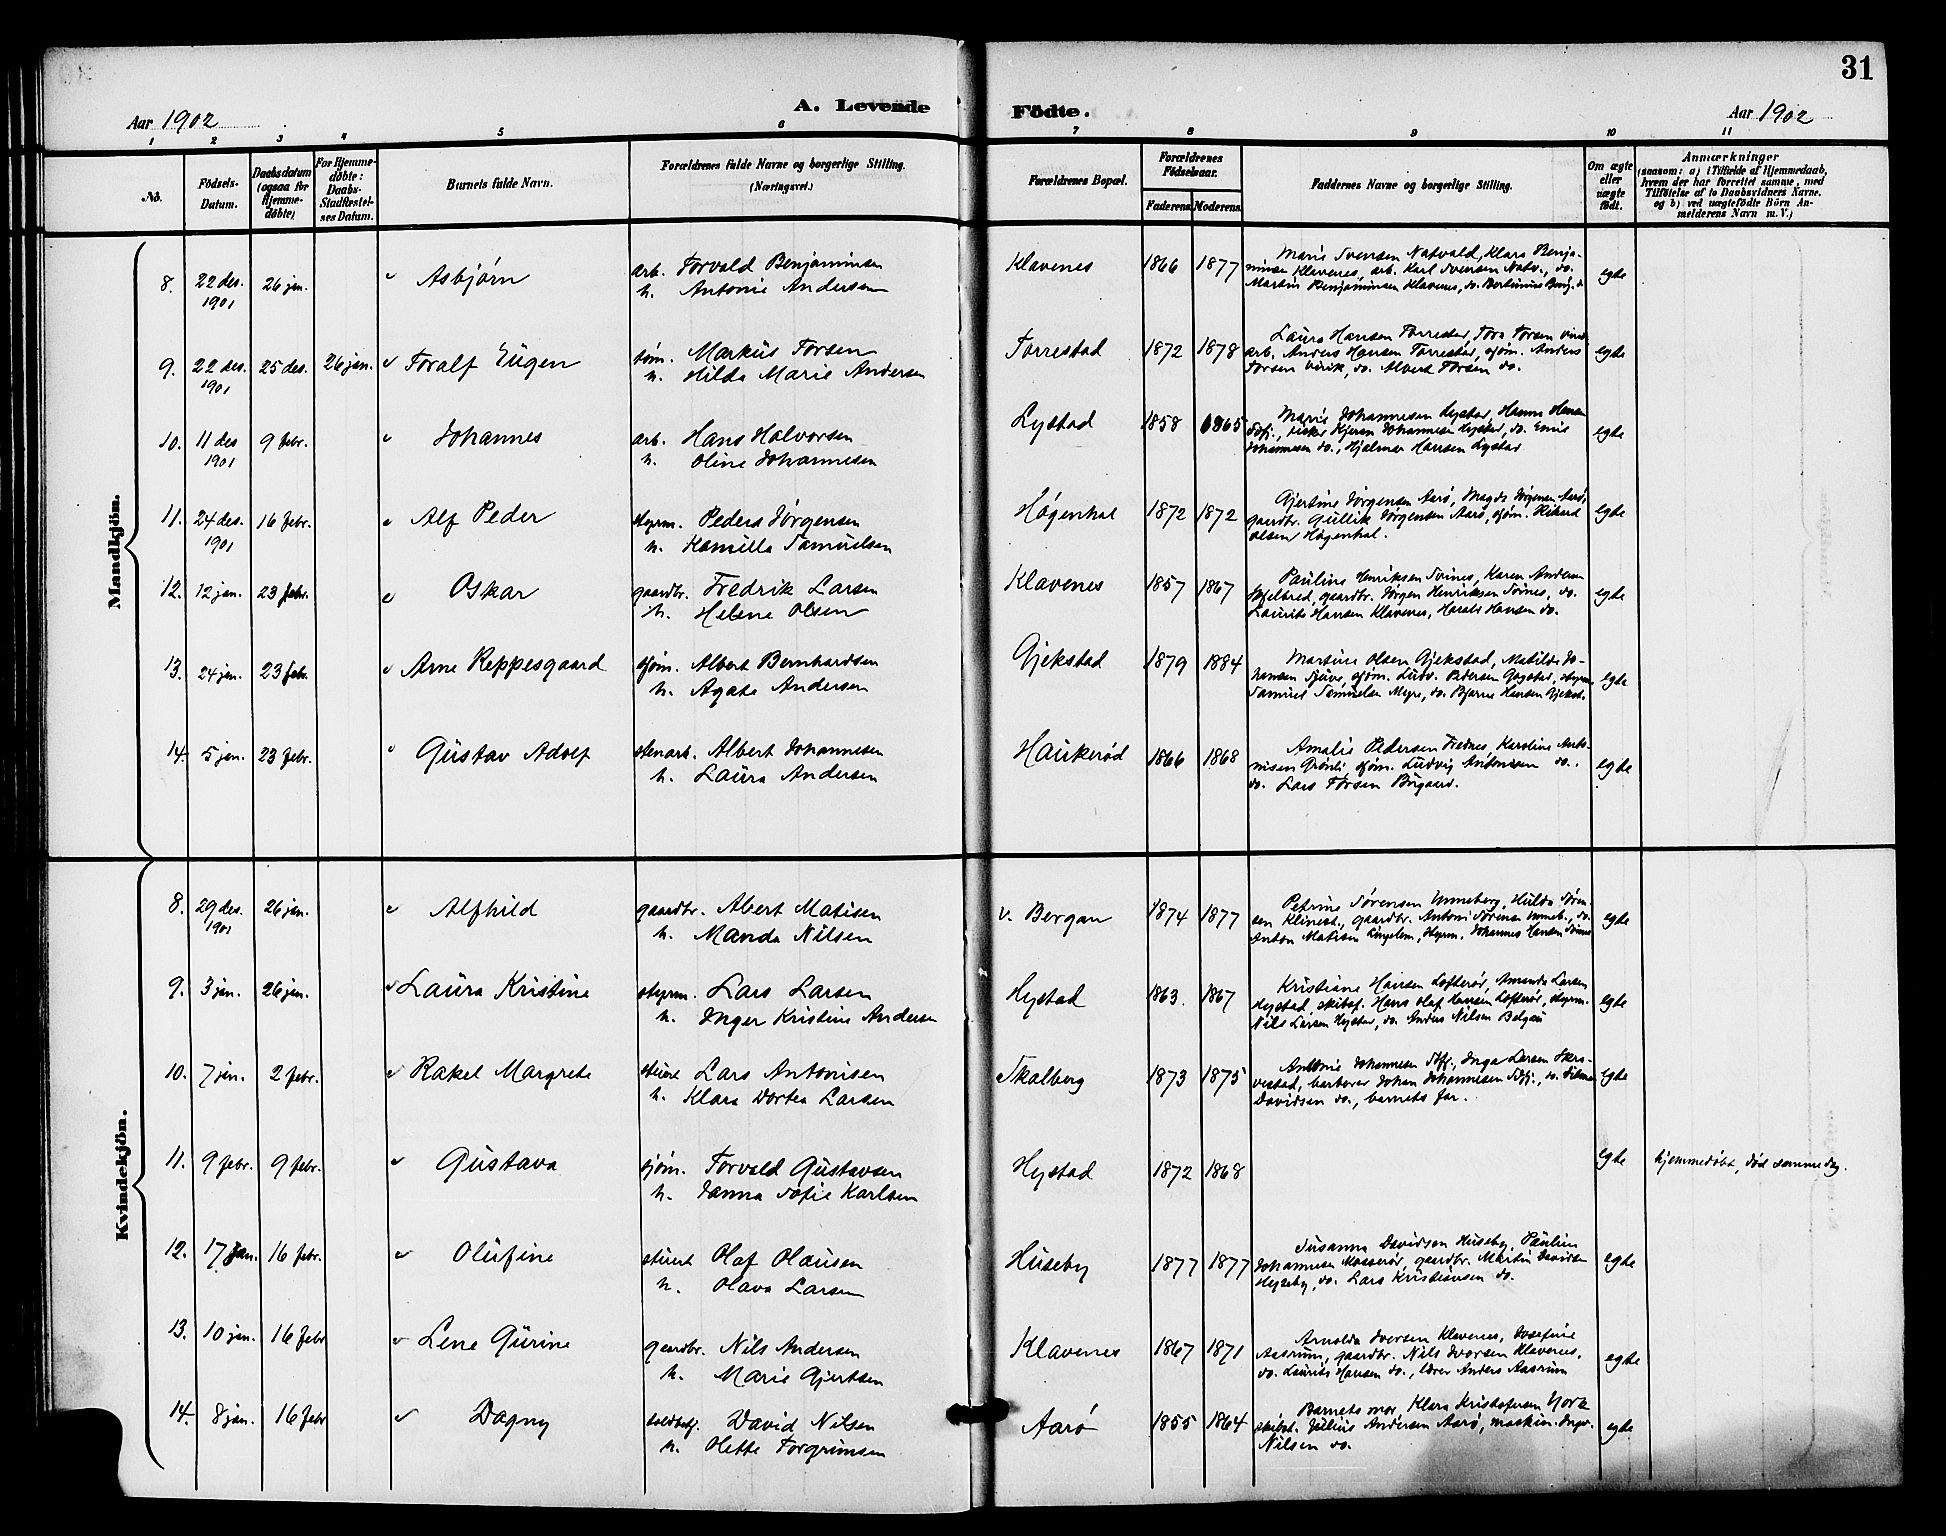 31
A. Levende Födte.
Aar 1902
Aar 1902
1 2 3 4 5 6 7 8 9 10 11
No.
Födsels-Datum.
Daabsdatum (ogsaa for Hjemmedöbte)
For Hjemmedöbte: Daabs-Stadfæstelses Datum.
Barnets fulde Navn.
Forældrenes fulde Navne og borgerlige Stilling. (Næringsvei.)
Forældrenes Bopæl.
Forældrenes Födselsaar.
Faderens. Moderens.
Faddernes Navne og borgerlige Stilling.
Om ægte eller uægte födt.
Anmærkninger
(saasom: a) i Tilfælde af Hjemmedaab, hvem der har forrettet samme, med Tilföielse af to Daabsvidners Navne. og b) ved uægtefödte Börn Anmelderens Navn m. V.)
Mandkjön.
8. 22 des. 1901 26 jan. Asbjørn arb. Torvald Benjaminsen h. Antonie Andersen Klavenes 1866 1877
Marie Svensen Natvald, Klara Benja-
minsen Klavenes, arb. Karl Svensen Natv., do.
Martin Benjaminsen Klavenes, do. Bertinius Benj. do egte
9. 22 des. 1901 25 des. 26 jan. Toralf Eugen søm. Markus Torsen h. Hilda Marie Andersen Torrestad 1872 1878
Laura Hansen Torrestad, Tora Torsen Virik
arb. Anders Hansen Torrestad, sjøm. Anders
Torsen Virik, do. Albert Torsen do. egte
10. 11 des 1901 9 febr. Johannes arb. Hans Halvorsen h. Oline Johannesen Lystad 1858 1865
Marie Johannesen Lystad, Hanna Hansen
fisker Johannesen Lystad, do. Emil
Johannesen do., Hjalmar Hansen Lystad egte
11. 24 des. 1901 16 febr. Alf Peder styrm. Peder Jørgensen h. Kamilla Samuelsen Høgenhal 1872 1872
Gjertine Jørgensen Aarø, Magda Jørgensen Aarø,
gaardbr. Gullik Jørgensen Aarø, sjøm. Rikard
Olsen Høgenhal. egte
12. 12 jan. 23 febr. Oskar gaardbr. Fredrik Larsen h. Helene Olsen Klavenes 1857 1867
Pauline Henriksen Tvines, Karen Andersen
gaardbr. Jørgen Henriksen Tvines, do.
Laurits Hansen Klavenes, Harals Hansen do. egte
13. 24 jan. 23 febr. Arne Reppesgaard sjøm. Albert Bernhardsen h. Agate Andersen Gjekstad 1879 1884
Martine Olsen Gjekstad, Matilda Jo-
hansen sjøm. Ludv. Pedersen styrm.
Samuel Samuelsen Meye, do. Bjarne Hansen Gjekst. egte
14. 5 jan. 23 febr. Gustav Adolf stenarb. Albert Johannesen h. Laura Andersen Haukerød 1866 1868
Amalie Pedersen Fednes, Karoline Anto-
nisen Grønli sjøm. Ludvig Antonisen do.
do. Lars Torsen Bugaard. egte
Kvindekjön.
8. 29 des. 1901 26 jan. Alfhild gaardbr. Albert Matisen h. Manda Nilsen v. Bergan 1874 1877
Petrine Sørensen Unneberg, Hilda Søren-
sen Klinest., gaardbr. Anton Sørensen Unneb., do.
Anton Matisen Lingelem, styrm. Johannes Hansen egte
9. 3 jan. 26 jan. Laura Kristine styrm. Lars Larsen h. Inger Kristine Andersen Hystad 1863. 1867
Kristiane Hansen Lofterød, Amanda Larsen
Hystad, skibsf. Hans Olaf Hansen Lofterød, styrm.
Nils Larsen Hystad, do. Anders Nilsen Belgau egte
10. 7 jan. 2 febr. Rakel Margrete stuert Lars Antonisen h. Klara Dortea Larsen Skalberg 1873 1875
Antonie Johannesen Sdfj., Inga Larsen Skra-
vestad, barberer Johan Johannesen Sdfj., do. Ditman
Davidsen do., barnets far. egte
11. 9 febr. 9 febr. Gustava sjøm. Torvald Gustavsen h. Janna Sofie Karlsen Hystad 1872 1868 egte hjemmedøbt, død samme dag.
12. 17 jan. 16 febr. Olufine stuert Olaf Olausen h. Olava Larsen Huseby 1877 1877
Susanna Davidsen Huseby, Pauline
Johannesen Mosserød, gaardbr. Martin Davidsen
Huseby, do. Lars Kristiansen do. egte
13. 10 jan. 16 febr Lene Gurine gaardbr. Nils Andersen h. Marie Gjertsen Klavenes 1867 1871
Arnolda Iversen Klavenes, Josefine
Aasrum, gaardbr. Nils Iversen Klavenes,
do. Laurits Hansen do., lærer Anders Aasrum egte
14. 8 jan. 16 febr Dagny David Nilsen h. Olette Torgrimsen Aarø 1855 1864
Barnets mor, Klara Kristofersen York
skibst. Julius Andersen Aarø, maskin. Ingv.
Nilsen do. egte